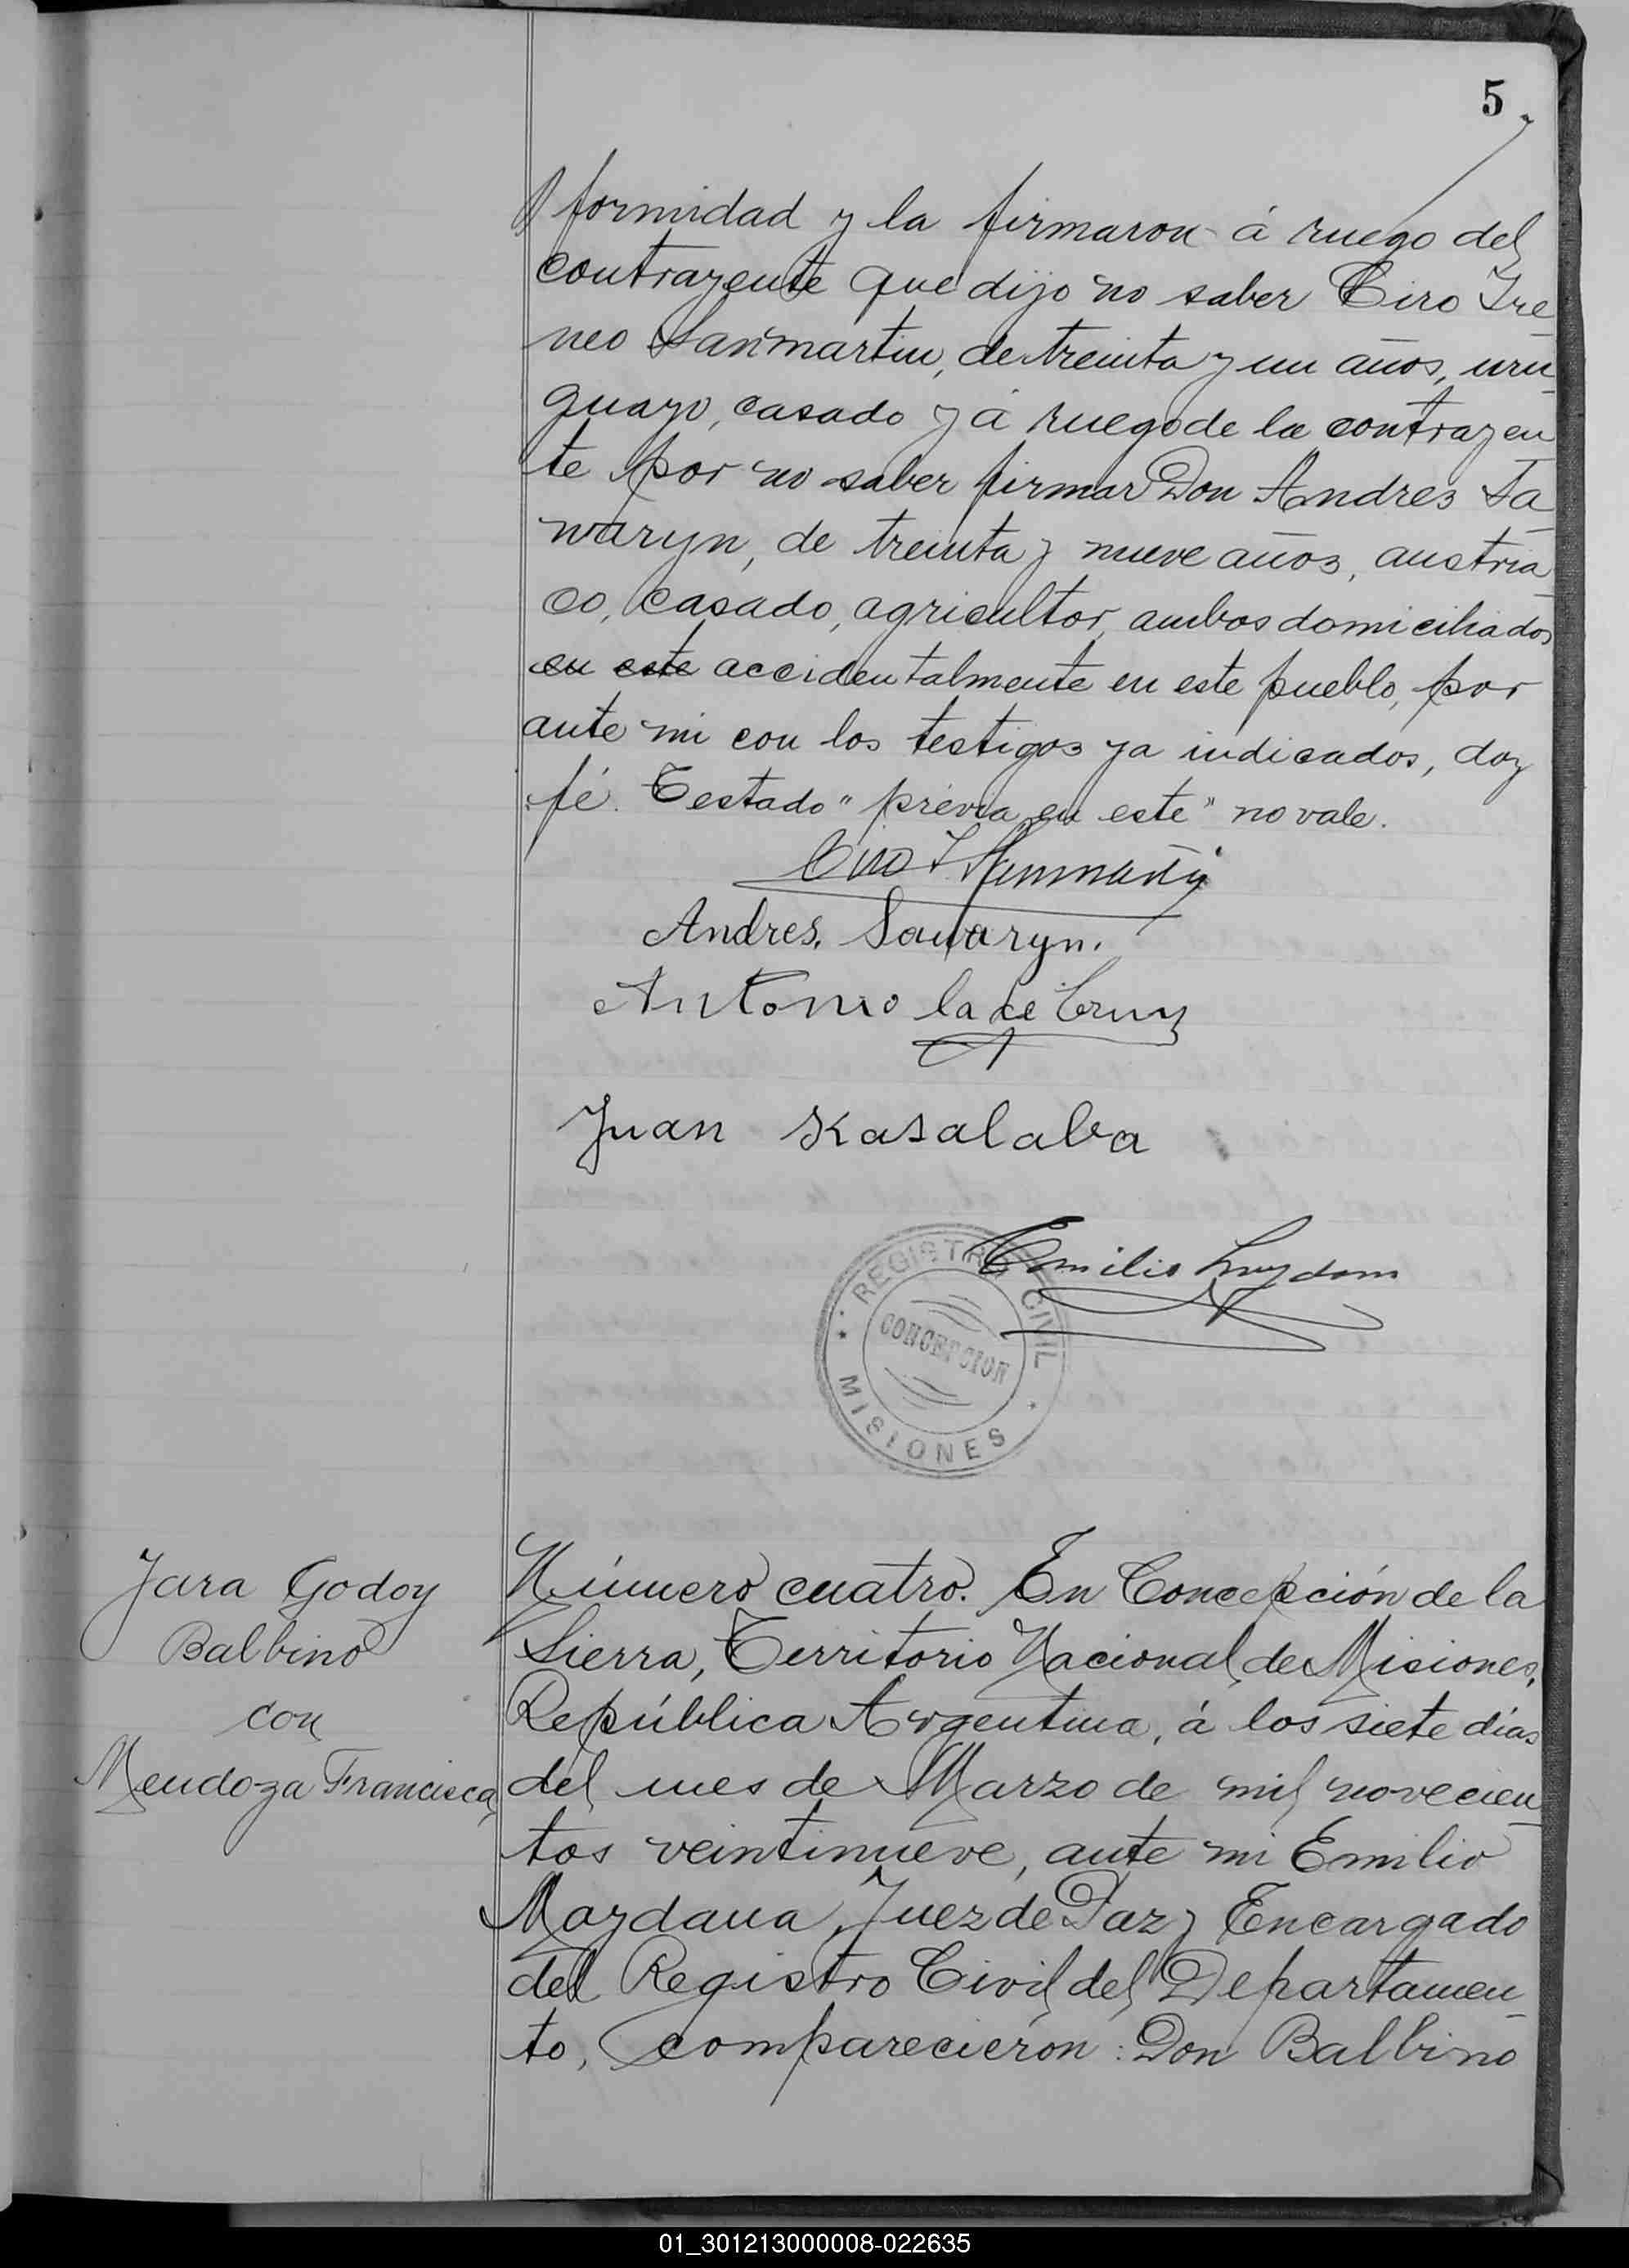 5
formidad y la firmaron á ruego del
contrayente que dijo no saber Ciro Ire
neo Sanmartin, de treinta y un años, uru
guayo, casado y á ruego de la contrayen
te por no saber firmar Don Andres Sa
waryn, de treinta y nueve años, austria
co, casado, agricultor, ambos domiciliados
en este accidentalmente en este pueblo, por
ante mi con los testigos ya indicados, doy
fé. Testado "prévia en este" no vale.
Ciro I Sanmartin
Andres. Sawaryn.
Antonio la de Cruz
Juan Kasalaba
Emilio
REGISTRO CIVIL
CONCEPCION
MISIONES
Jara Godoy
Balbino
con
Mendoza Francisca
Número cuatro. En Concepción de la
Sierra, Territorio Nacional de Misiones,
República Argentina, á los siete días
del mes de Marzo de mil novecien
tos veintinueve, ante mi Emilio
Maydana, Juez de Paz y Encargado
del Registro Civil del Departamen
to, comparecieron: Don Balbino
01_301213000008-022635